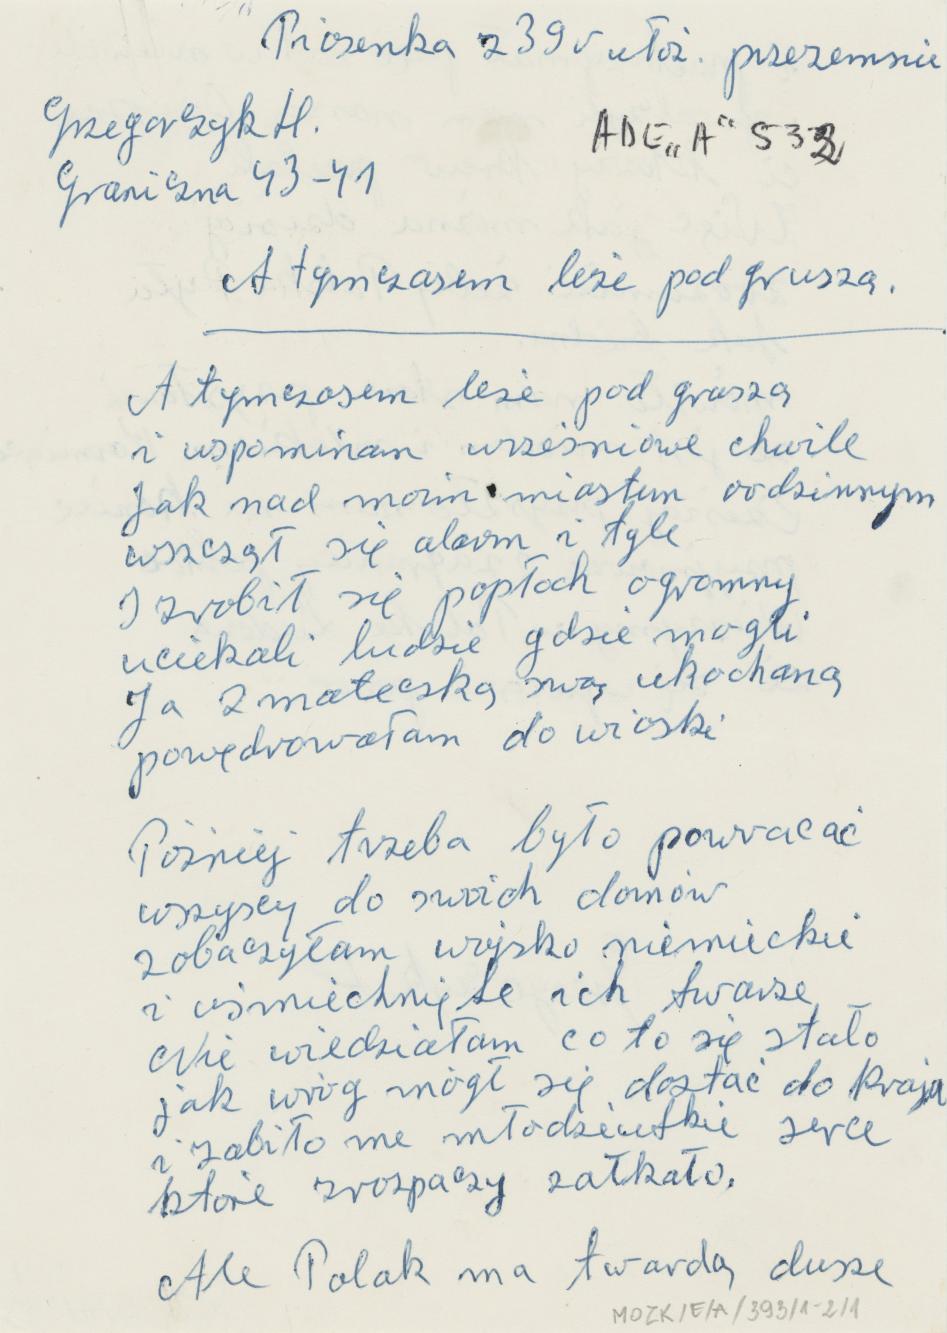 Piosenka z 39 r ułoż. przezemnie
Grzegorczyk H.
ADE „A" 532
Graniczna 43-41
A tymczasem leże pod gruszą.
A tymczasem leże pod gruszą
i wspominam wrześniowe chwile
Jak nad moim miastem rodzinnym
wszczął się alarm i tyle
I zrobił się popłoch ogromny
uciekali ludzie gdzie mogli
Ja z mateczką swą ukochaną
powędrowałam do wioski
Pózniej trzeba było powracać
wszyscy do swoich domów
zobaczyłam wojsko niemieckie
i uśmiechnięte ich twarze
Nie wiedziałam co to się stało
jak wróg mógł się dostać do kraju
i zabiło me młodzieńskie serce
które zrozpaczy załkało.
Ale Polak ma twardą dusze
MOZK/E/A/393/1-2/1